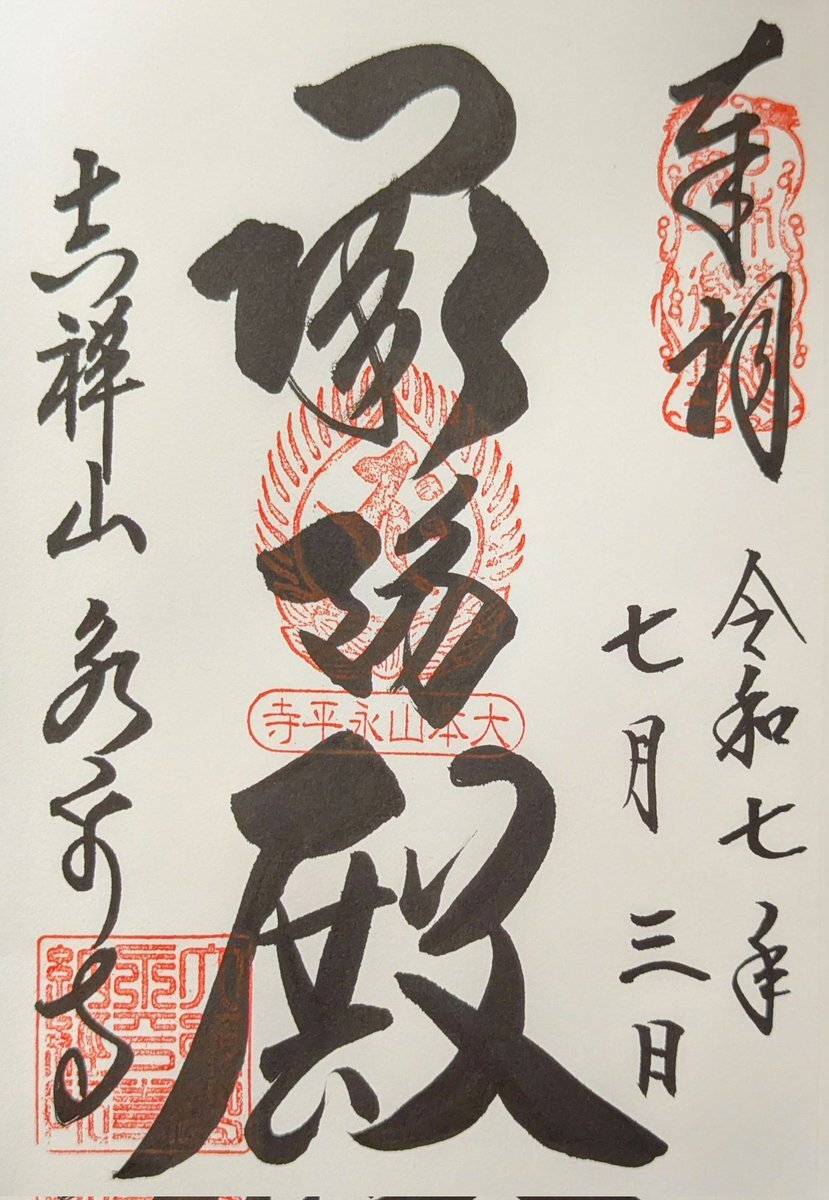 奉拝
令和七年
七月三日
承陽殿
大本山永平寺
吉祥山永平寺